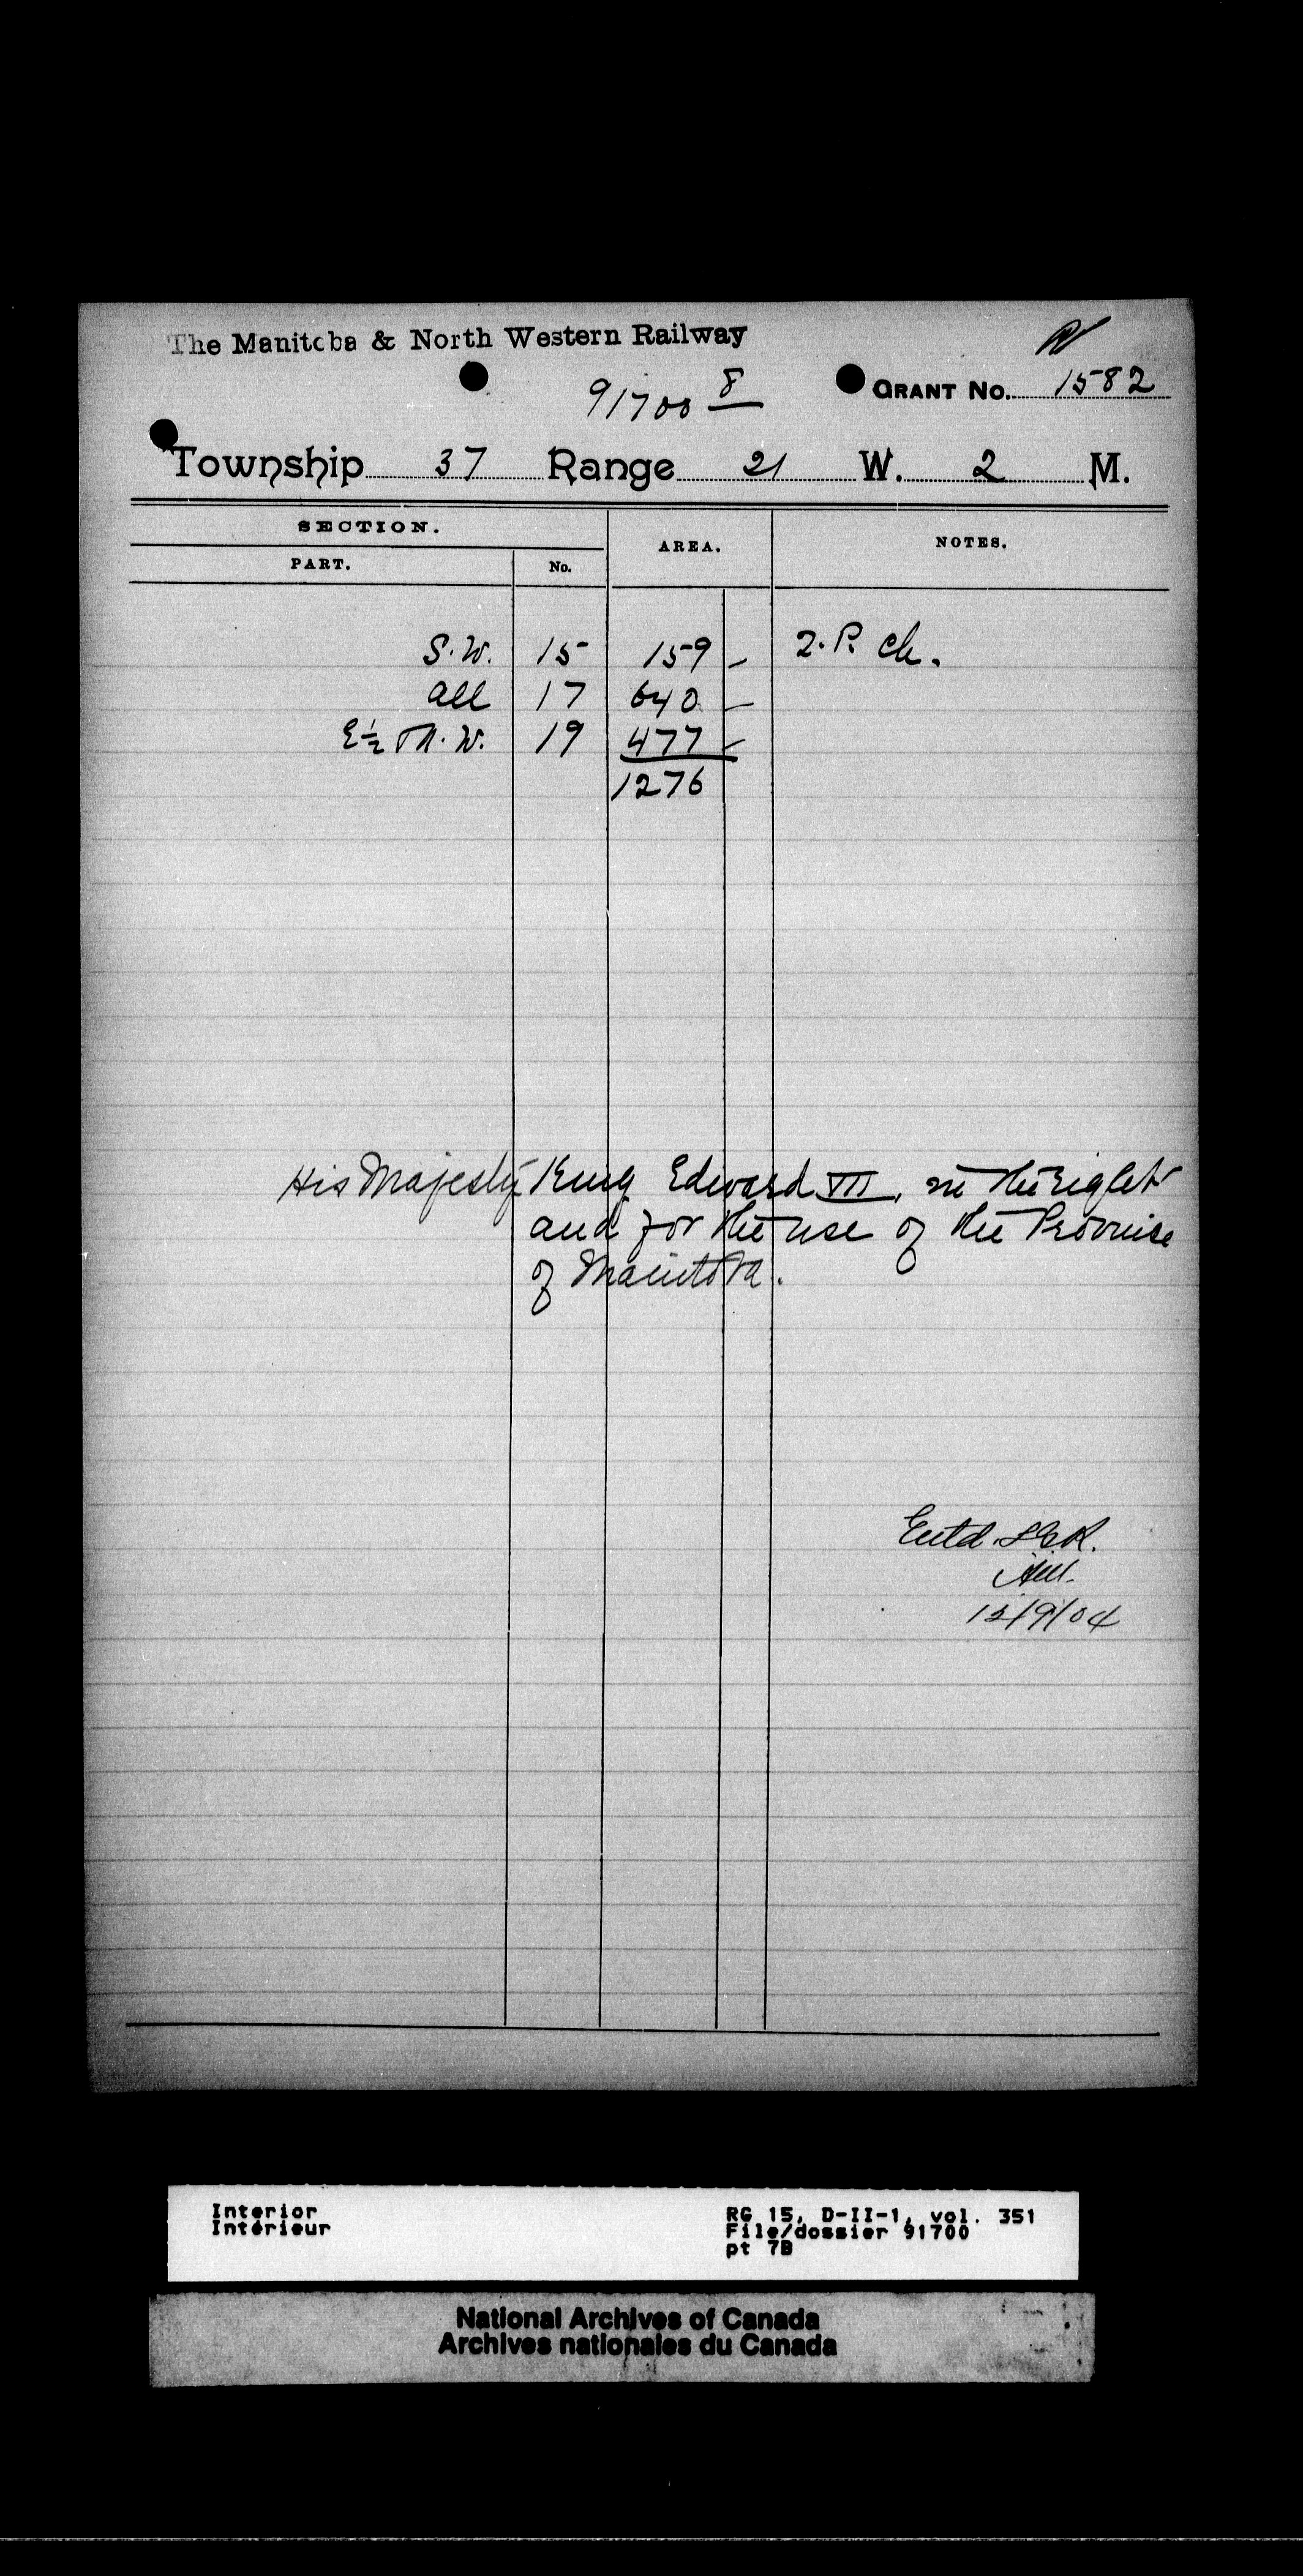 The Manitoba & North Western Railway
91700 8
GRANT No. 1582
Township 37 Range 21 W. 2 M.
SECTION.
PART. No. AREA. NOTES.
S.W. 15 159 - 2. P. Ch.
all 17 640 -
E½ & N.W. 19 477 -
1276
His Majesty King Edward VII, in the right
and for the use of the Province
of Manitoba.
Entd.
13/9/04
Interior
Intérieur
RG 15, D-II-1, vol. 351
File/dossier 91700
pt 7B
National Archives of Canada
Archives nationales du Canada